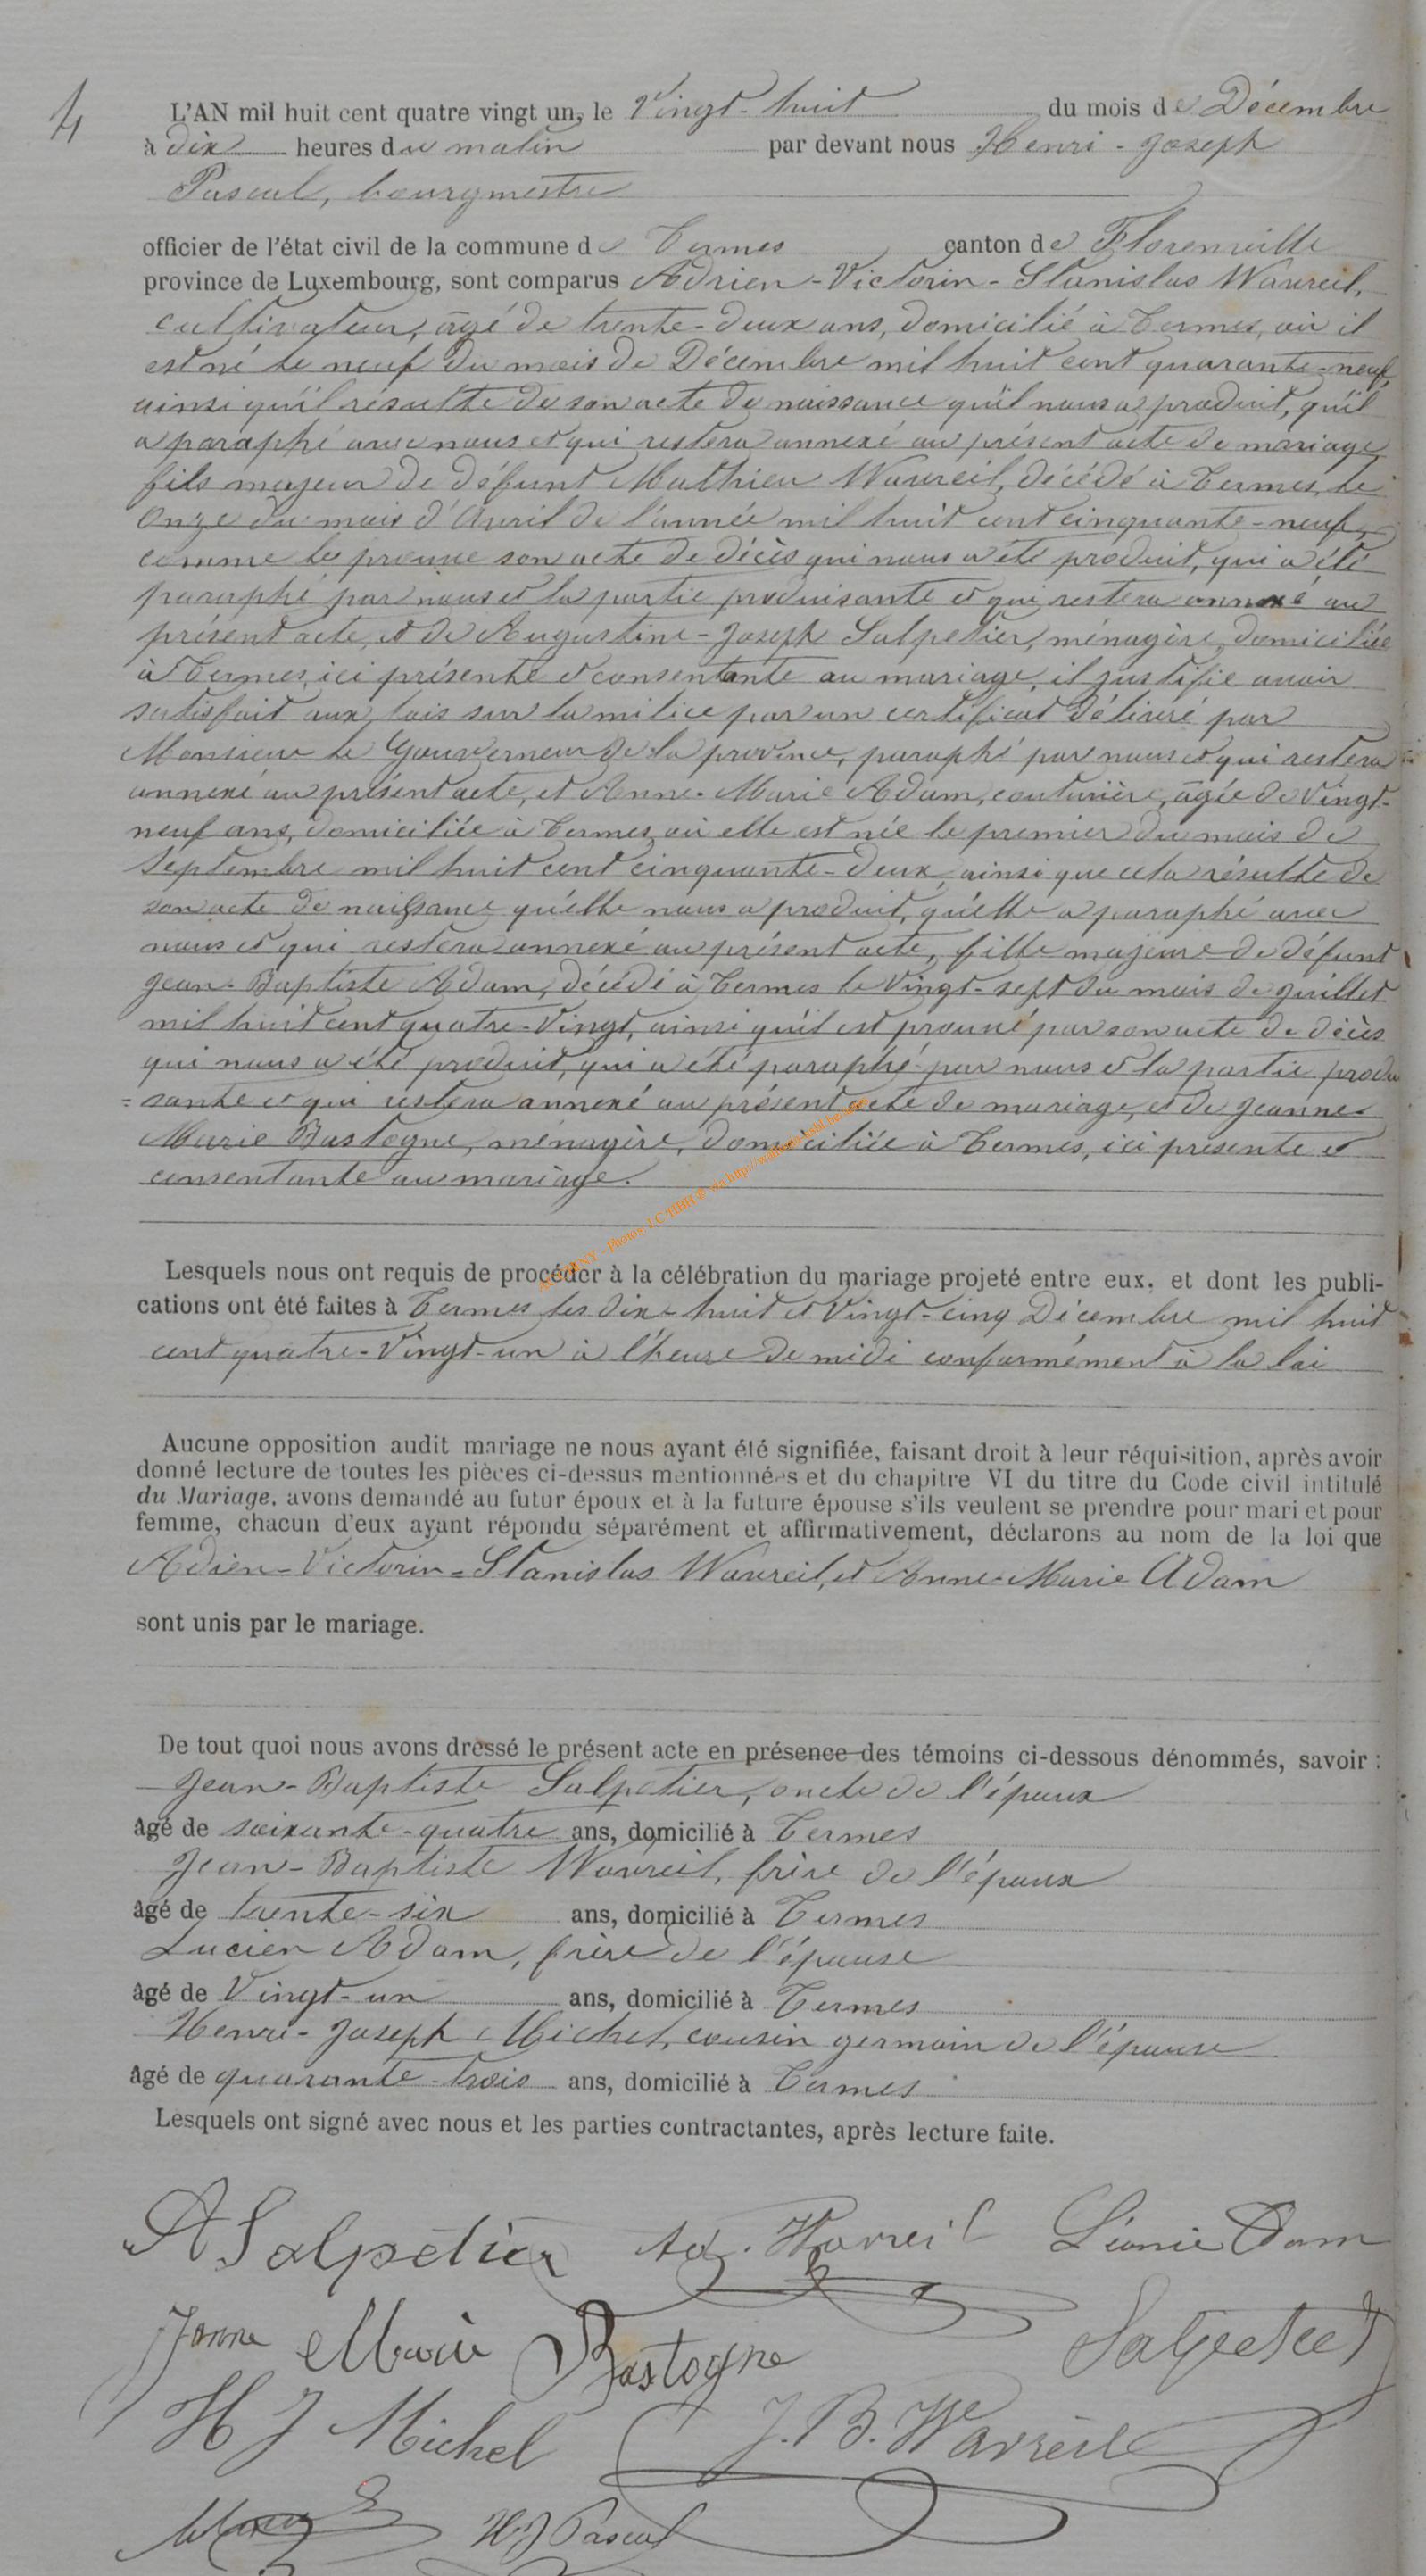 4
L'AN mil huit cent quatre vingt un, le Vingt-huit du mois de Décembre
à dix heures du matin par devant nous Henri-Joseph
Pascal, bourgmestre
officier de l'état civil de la commune de Termes canton de Florenville
province de Luxembourg, sont comparus Adrien-Victorin-Stanislas Wavreil,
cultivateur, âgé de trente-deux ans, domicilié à Termes, où il
est né le neuf du mois de Décembre mil huit cent quarante-neuf,
ainsi qu'il résulte de son acte de naissance qu'il nous a produit, qu'il
a paraphé avec nous et qui restera annexé au présent acte de mariage,
fils majeur de défunt Mathieu Wavreil, décédé à Termes, le
Onze du mois d'Avril de l'année mil huit cent cinquante-neuf,
comme le prouve son acte de décès qui nous a été produit, qui a été
paraphé par nous et la partie produisante et qui restera annexé au
présent acte, et de Augustine-Joseph Salpetier, ménagère, domiciliée
à Termes, ici présente et consentante au mariage, il justifie avoir
satisfait aux lois sur la milice par un certificat délivré par
Monsieur le Gouverneur de la province, paraphé par nous et qui restera
annexé au présent acte, et Anne-Marie Adam, couturière, âgée de Vingt-
neuf ans, domiciliée à Termes, où elle est née le premier du mois de
Septembre mil huit cent cinquante-deux, ainsi que cela résulte de
son acte de naissance qu'elle nous a produit, qu'elle a paraphé avec
nous et qui restera annexé au présent acte, fille majeure de défunt
Jean-Baptiste Adam, décédé à Termes le Vingt-sept du mois de Juillet
mil huit cent quatre-Vingt, ainsi qu'il est prouvé par son acte de décès
qui nous a été produit, qui a été paraphé par nous et la partie produi
=sante et qui restera annexé au présent acte de mariage, et de Jeanne-
Marie Bastogne, ménagère, domiciliée à Termes, ici présente et
consentante au mariage.
Lesquels nous ont requis de procéder à la célébration du mariage projeté entre eux, et dont les publi-
cations ont été faites à Termes les dix-huit et Vingt-cinq Décembre mil huit
cent quatre-Vingt-un à l'heure de midi conformément à la loi
Aucune opposition audit mariage ne nous ayant été signifiée, faisant droit à leur réquisition, après avoir
donné lecture de toutes les pièces ci-dessus mentionnées et du chapitre VI du titre du Code civil intitulé
du Mariage, avons demandé au futur époux et à la future épouse s'ils veulent se prendre pour mari et pour
femme, chacun d'eux ayant répondu séparément et affirmativement, déclarons au nom de la loi que
Adien-Victorin=Stanislas Wavreil, et Anne-Marie Adam
sont unis par le mariage.
De tout quoi nous avons dressé le présent acte en présence des témoins ci-dessous dénommés, savoir :
Jean-Baptiste Salpetier, oncle de l'époux
âgé de soixante-quatre ans, domicilié à Termes
Jean-Baptiste Wavreil, frère de l'époux
âgé de trente-six ans, domicilié à Termes
Lucien Adam, frère de l'épouse
âgé de Vingt-un ans, domicilié à Termes
Henri-Joseph Michel, cousin germain de l'épouse
âgé de quarante-trois ans, domicilié à Termes
Lesquels ont signé avec nous et les parties contractantes, après lecture faite.
A Salpétier Ad. Wavreil Adam
Janne Marie Bastogne Salpetier
H J Michel J. B. Wavreil
H J Pascal